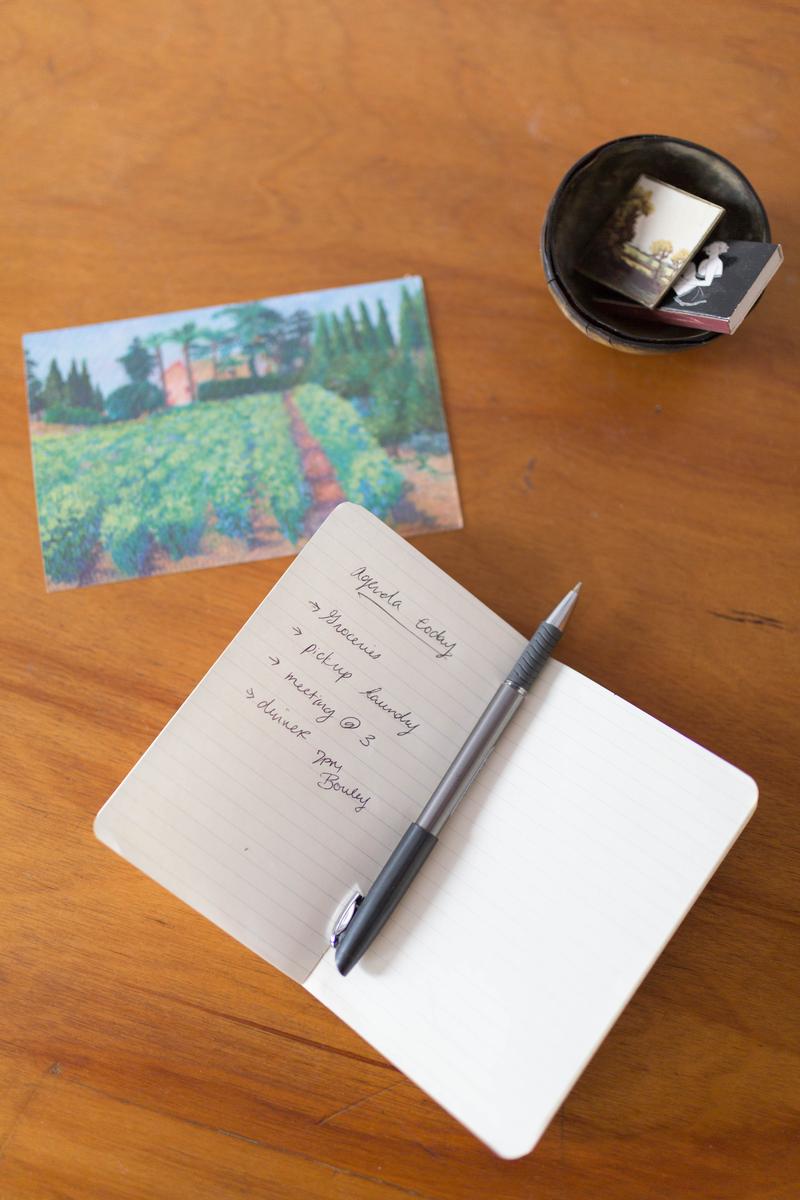 Agenda today
→ Groceries
→ pickup laundry
→ meeting @ 3
→ dinner
7pm
Bouley